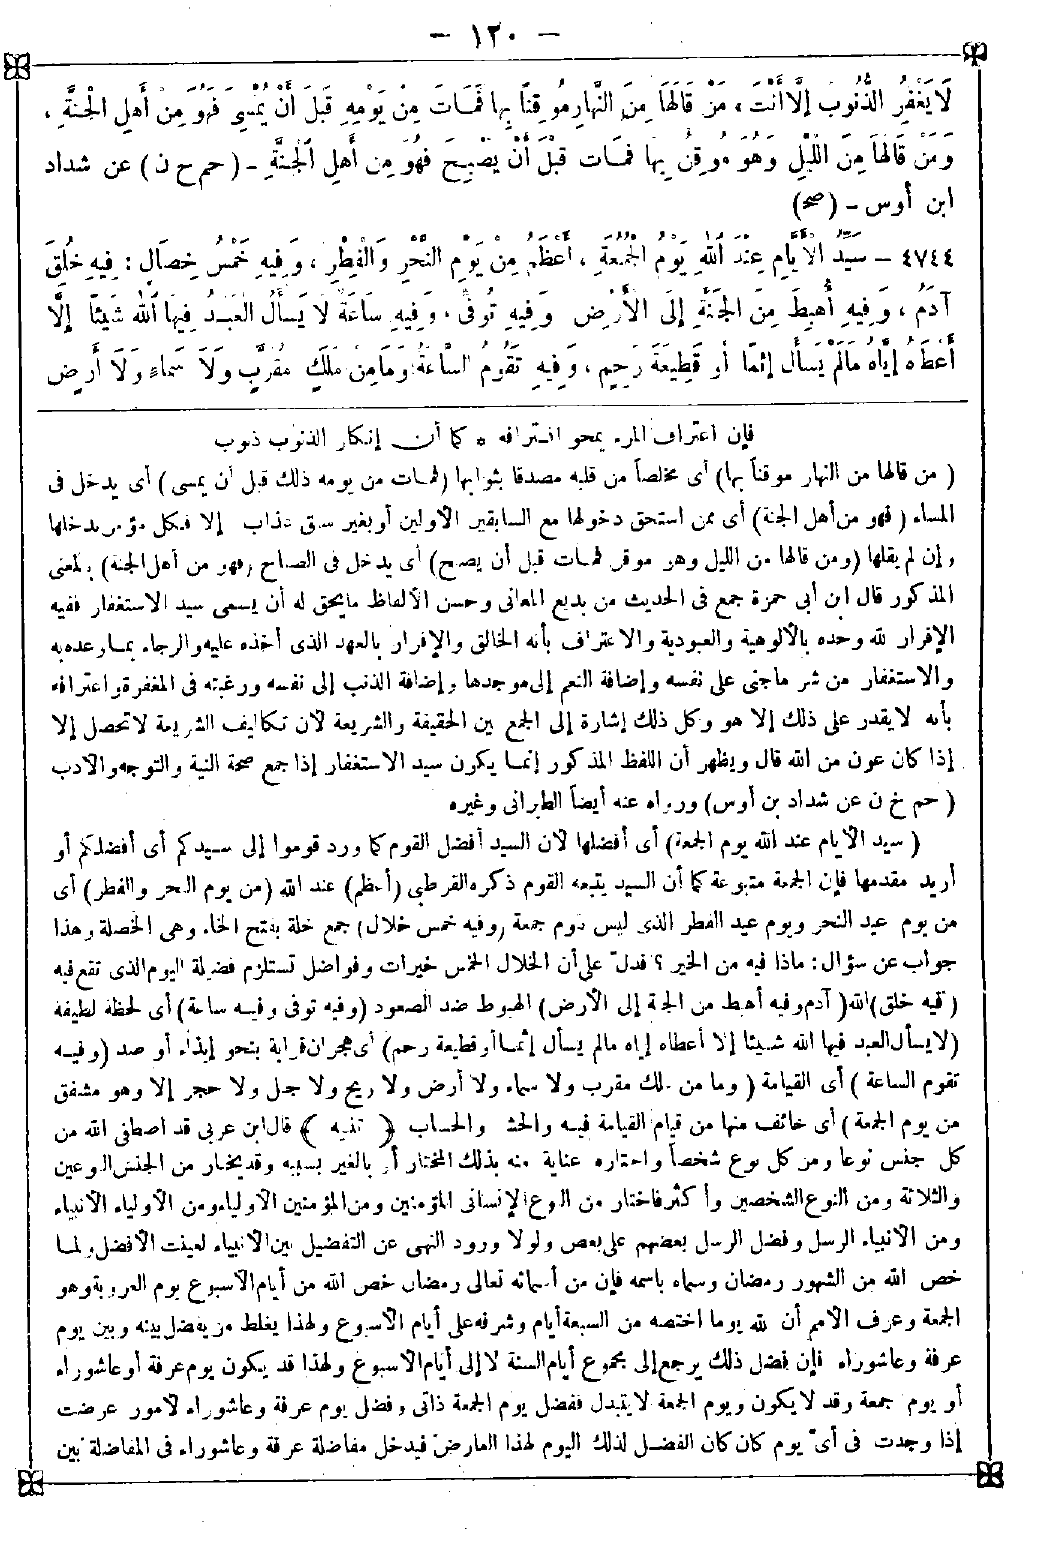 – ١٢٠ –
لَا يَغْفِرُ الذُّنُوبَ إِلَّا أَنْتَ ، مَنْ قَالَهَا مِنَ النَّهَارِ مُوقِنًا بِهَا فَمَاتَ مِنْ يَوْمِهِ قَبْلَ أَنْ يُمْسِىَ فَهُوَ مِنْ أَهْلِ الْجَنَّةِ ،
وَمَنْ قَالَهَا مِنَ اللَّيْلِ وَهُوَ مُوقِنٌ بِهَا فَمَاتَ قَبْلَ أَنْ يُصْبِحَ فَهُوَ مِنْ أَهْلِ الْجَنَّةِ – ( حم خ ن ) عن شداد
ابن أوس – (صح)
٤٧٤٤ – سَيِّدُ الْأَيَّامِ عِنْدَ اللَّهِ يَوْمُ الْجُمُعَةِ ، أَعْظَمُ مِنْ يَوْمِ النَّحْرِ وَالْفِطْرِ ، وَفِيهِ خَمْسُ خِصَالٍ : فِيهِ خُلِقَ
آدَمُ ، وَفِيهِ أُهْبِطَ مِنَ الْجَنَّةِ إِلَى الْأَرْضِ وَفِيهِ تُوُفِّىَ ، وَفِيهِ سَاعَةٌ لَا يَسْأَلُ الْعَبْدُ فِيهَا اللَّهَ شَيْئًا إِلَّا
أَعْطَاهُ إِيَّاهُ مَالَمْ يَسْأَلْ إِثْمًا أَوْ قَطِيعَةَ رَحِمٍ ، وَفِيهِ تَقُومُ السَّاعَةُ وَمَا مِنْ مَلَكٍ مُقَرَّبٍ وَلَا سَمَاءٍ وَلَا أَرْضٍ
فإن اعتراف المرء يمحو اقترافه ٥ كما أن إنكار الذنوب ذنوب
( من قالها من النهار موقناً بها) أى مخلصاً من قلبه مصدقا بثوابها (فمات من يومه ذلك قبل أن يمسى) أى يدخل فى
المساء ( فهو من أهل الجنة) أى ممن استحق دخولها مع السابقين الأولين أو بغير سبق عذاب إلا فكل مؤمن يدخلها
وإن لم يقلها (ومن قالها من الليل وهو موقن فمات قبل أن يصبح) أى يدخل فى الصباح (فهو من أهل الجنة) بالمعنى
المذكور قال ابن أبى حمزة جمع فى الحديث من بديع المعانى وحسن الألفاظ ما يحق له أن يسمى سيد الاستغفار ففيه
الإقرار لله وحده بالألوهية والعبودية والاعتراف بأنه الخالق والإقرار بالعهد الذى أخذه عليه والرجاء بما وعده به
والاستغفار من شر ما جنى على نفسه وإضافة النعم إلى موجدها وإضافة الذنب إلى نفسه ورغبته فى المغفرة واعترافه
بأنه لا يقدر على ذلك إلا هو وكل ذلك إشارة إلى الجمع بين الحقيقة والشريعة لأن تكاليف الشريعة لا تحصل إلا
إذا كان عون من الله قال ويظهر أن اللفظ المذكور إنما يكون سيد الاستغفار إذا جمع صحة النية والتوجه والأدب
( حم خ ن عن شداد بن أوس) ورواه عنه أيضاً الطبرانى وغيره
( سيد الأيام عند الله يوم الجمعة) أى أفضلها لأن السيد أفضل القوم كما ورد قوموا إلى سيدكم أى أفضلكم أو
أريد مقدمها فإن الجمعة متبوعة كما أن السيد يتبعه القوم ذكره القرطبى (أعظم) عند الله (من يوم النحر والفطر) أى
من يوم عيد النحر ويوم عيد الفطر الذى ليس يوم جمعة (وفيه خمس خلال) جمع خلة بفتح الخاء وهى الخصلة وهذا
جواب عن سؤال : ماذا فيه من الخير ؟ فدلّ على أن الخلال الخمس خيرات وفواضل تستلزم فضيلة اليوم الذى تقع فيه
( فيه خلق)الله( آدم وفيه أهبط من الجنة إلى الأرض) الهبوط ضد الصعود (وفيه توفى وفيه ساعة) أى لحظة لطيفة
(لا يسأل العبد فيها الله شيئا إلا أعطاه إياه مالم يسأل إثما أو قطيعة رحم) أى هجران قرابة بنحو إيذاء أو صد (وفيه
تقوم الساعة ) أى القيامة ( وما من ملك مقرب ولا سماء ولا أرض ولا ريح ولا جبل ولا حجر إلا وهو مشفق
من يوم الجمعة ) أى خائف منها من قيام القيامة فيه والحشر والحساب ( تنبيه ) قال ابن عربى قد اصطفى الله من
كل جنس نوعا ومن كل نوع شخصاً واختاره عناية منه بذلك المختار أو بالغير بسببه وقد يختار من الجنس النوعين
والثلاثة ومن النوع الشخصين وأكثر فاختار من النوع الإنسانى المؤمنين ومن المؤمنين الأولياء ومن الأولياء الأنبياء
ومن الأنبياء الرسل وفضل الرسل بعضهم على بعض ولولا ورود النهى عن التفضيل بين الأنبياء لعينت الأفضل ولما
خص الله من الشهور رمضان وسماه باسمه فإن من أسمائه تعالى رمضان خص الله من أيام الأسبوع يوم العروبة وهو
الجمعة وعرف الأمم أن لله يوما اختصه من السبعة أيام وشرفه على أيام الأسبوع ولهذا يغلط من يفضل بينه وبين يوم
عرفة وعاشوراء فإن فضل ذلك يرجع إلى مجموع أيام السنة لا إلى أيام الأسبوع ولهذا قد يكون يوم عرفة أو عاشوراء
أو يوم جمعة وقد لا يكون ويوم الجمعة لا يتبدل ففضل يوم الجمعة ذاتى وفضل يوم عرفة وعاشوراء لأمور عرضت
إذا وجدت فى أىّ يوم كان كان الفضل لذلك اليوم لهذا العارض فيدخل مفاضلة عرفة وعاشوراء فى المفاضلة بين